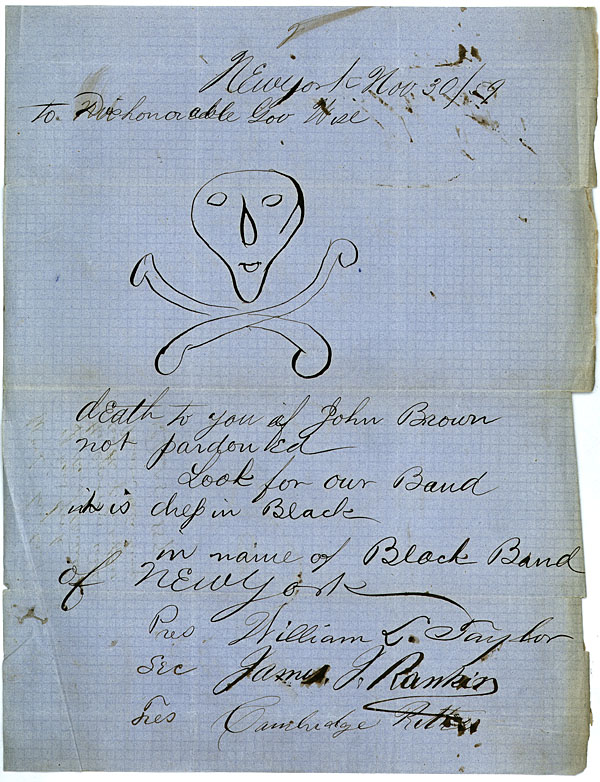 NEwyork Nov. 30/59
to Dishonorable Gov Wise
death to you if John Brown
not pardon'Ed
Look for our Band
is dress in Black
in name of Black Band
of NEWYork
Pres William L. Taylor
SEc James J. Rankin
Tres Cambridge